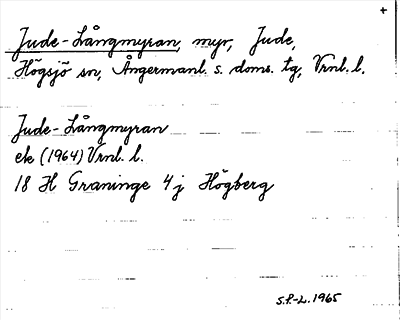 +
Jude-Långmyran, myr, Jude,
Högsjö sn, Ångermanl. s. doms. tg, Vrnl. l.
Jude-Långmyran
ek (1964) Vrnl. l.
18 H Graninge 4 j Högberg
S.P.-L. 1965